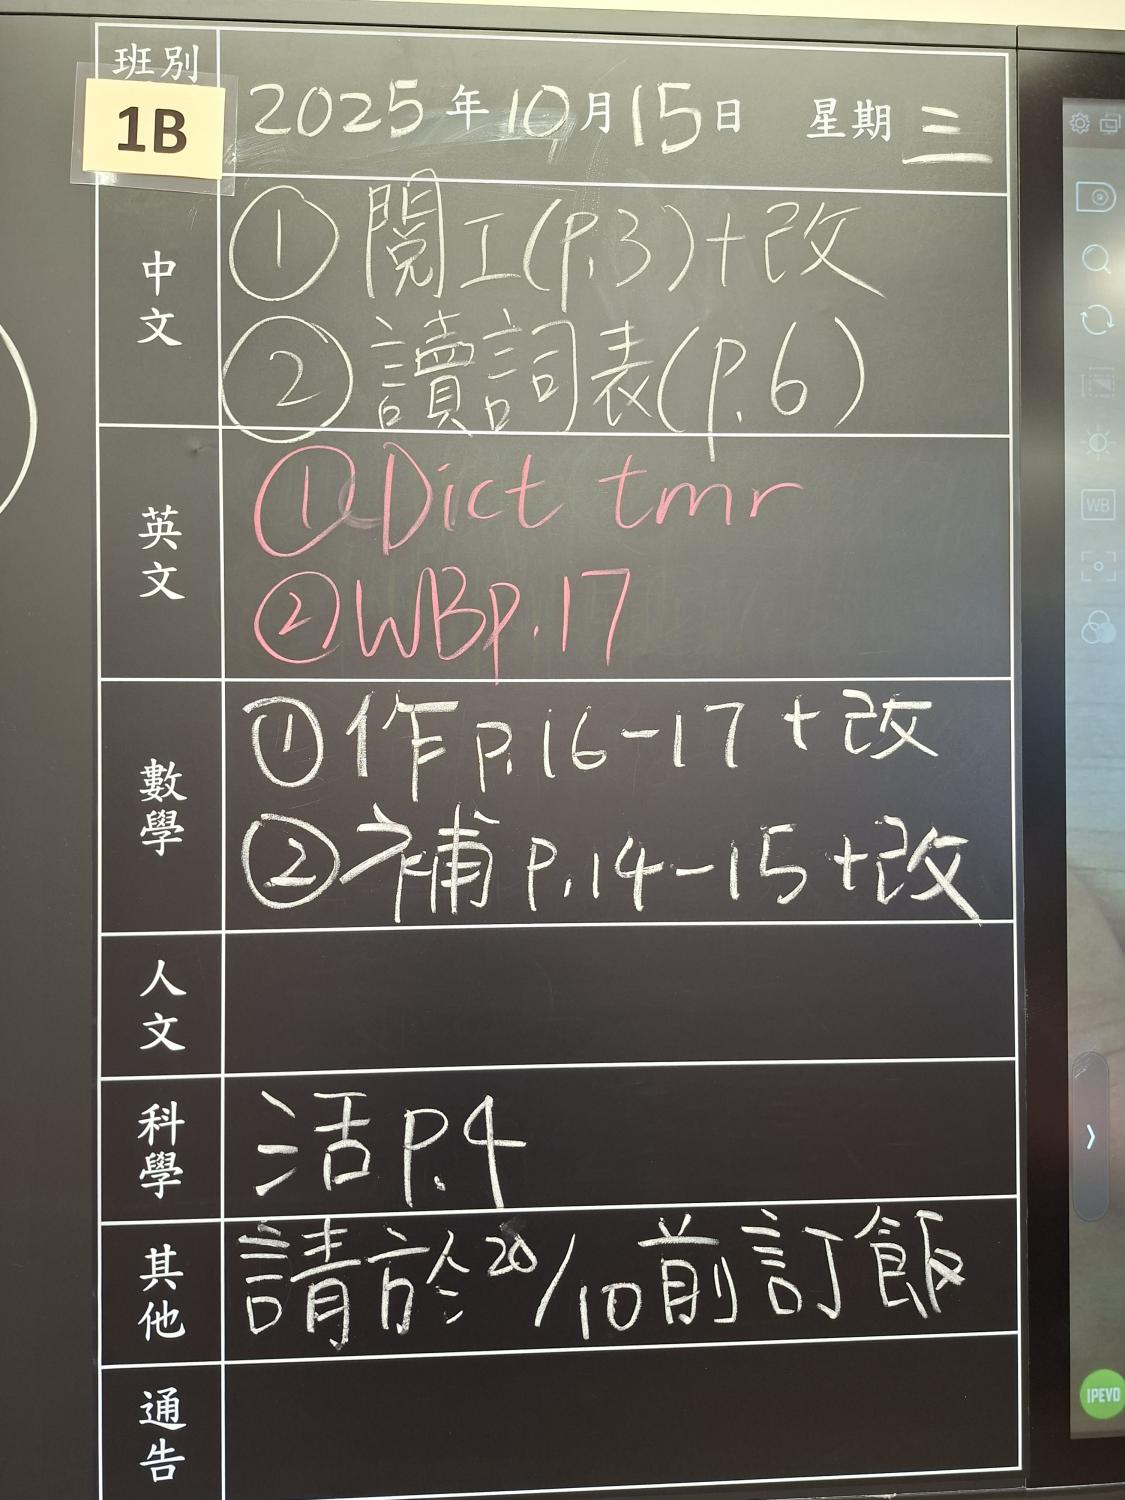 班別
1B
2025年10月15日 星期三
中文
① 閱工(p.3)+改
② 讀詞表(p.6)
英文
① Dict tmr
② WBp.17
數學
① 作p.16-17+改
② 補p.14-15+改
人文
科學
活p.4
其他
請於20/10前訂飯
通告
WB
IPEVO